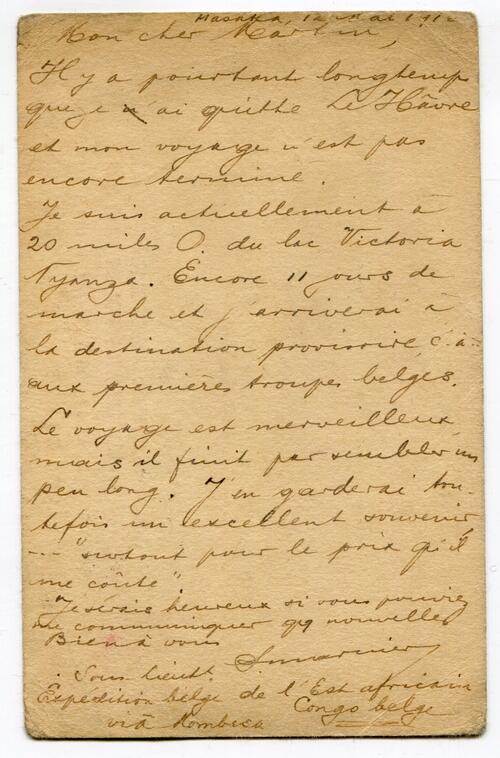 Masaka, 12 Mai 191
Mon cher Martin,
Il y a pourtant longtemp
que je n'ai quitté Le Hâvre
et mon voyage n'est pas
encore terminé.
Je suis actuellement à
20 miles O. du lac Victoria
Nyanza. Encore 11 jours de
marche et j'arriverai à
la destination provisoire, c.à.
aux premières troupes belges.
Le voyage est merveilleux
mais il finit par sembler un
peu long. J'en garderai tou-
tefois un excellent souvenir,
--- "surtout pour le prix qu'il
me coûte".
Je serais heureux si vous pouviez
me communiquer qq nouvelles
Bien à vous
Sous lieut.
Expédition belge de l'Est africain
via Mombasa Congo belge